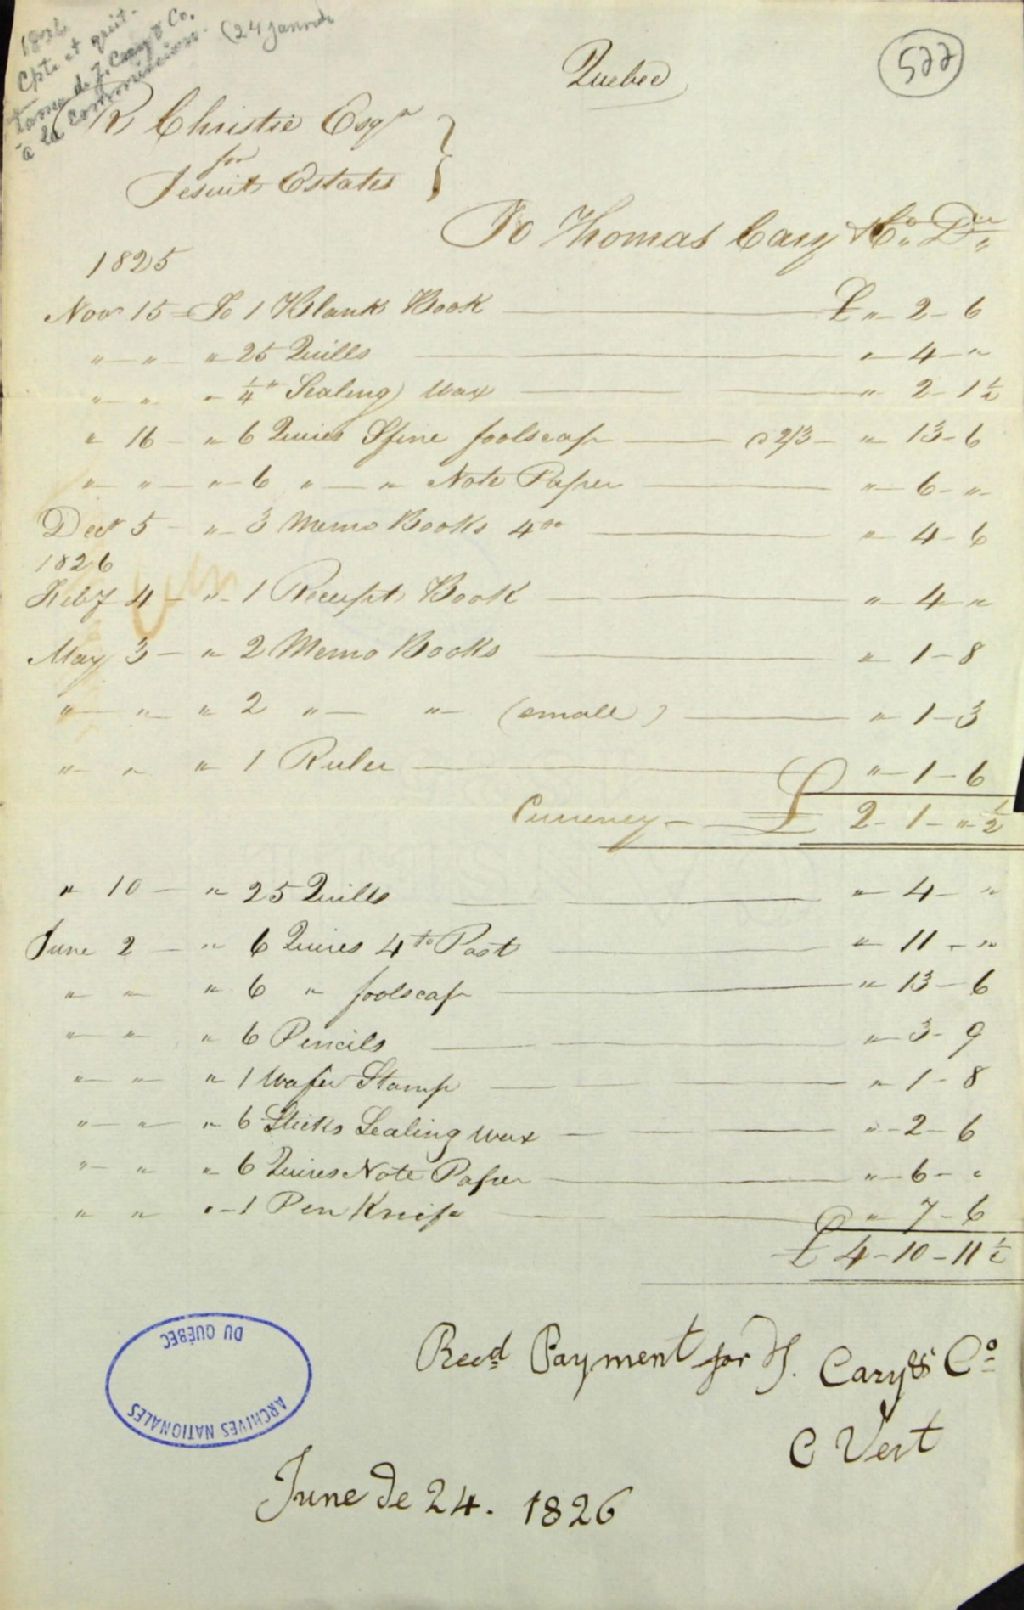 1826
Cpte et quit-
tance de J. Cary & Co.
à la Commission. (24 janvier
522
Quebec
R Christie Esqr
for
Jesuit Estates
To Thomas Cary & Co. Dr
1825
Novr 15 = To 1 Blank Book £ " 2 - 6
" - " - " 25 Quills " - 4 - "
" - " - " 1/4 lb Sealing Wax " 2 - 1 1/2
" 16 - " 6 Quires Sfine foolscap @ 2/3 - " 13 - 6
" - " - " - 6 " - " Note Paper " - 6 - "
Decr 5 - " - 3 Memo Books 4to " 4 - 6
1826
Feby 4 - " - 1 Receipt Book " 4 - "
May 3 - " 2 Memo Books " 1 - 8
" - " - " 2 " - " - (small) " 1 - 3
" - " - " 1 Ruler " - 1 - 6
Currency - £ 2 - 1 - " 1/2
" 10 - " 25 Quills " 4 - "
June 2 - " 6 Quires 4to Post " 11 - "
" - " - " 6 " foolscap " 13 - 6
" - " - " 6 Pencils " - 3 - 9
" - " - " 1 Wafer Stamp " 1 - 8
" - " - " 6 Sticks Sealing wax " - 2 - 6
" - " - " 6 Quires Note Paper " - 6 - "
" - " - " - 1 Pen Knife " - 7 - 6
£ 4 - 10 - 11 1/2
Recd Payment for T. Cary & Co
C Vert
June de 24. 1826
ARCHIVES NATIONALES
DU QUÉBEC